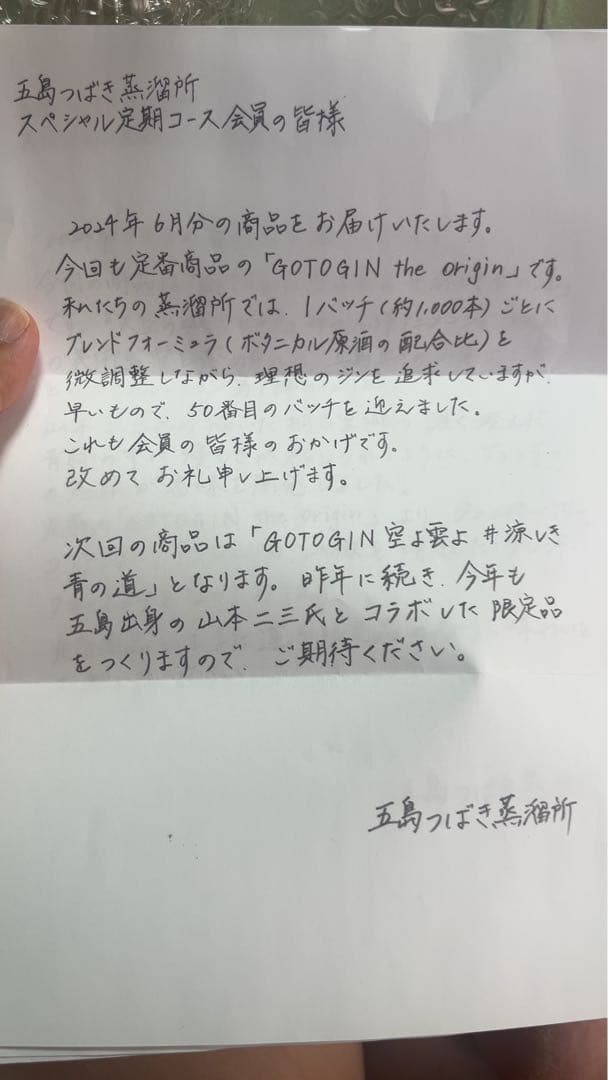 五島つばき蒸溜所
スペシャル定期コース会員の皆様
2024年6月分の商品をお届けいたします。
今回も定番商品の「GOTOGIN the origin」です。
私たちの蒸溜所では、1バッチ(約1,000本)ごとに
ブレンドフォーミュラ(ボタニカル原酒の配合比)を
微調整しながら、理想のジンを追求していますが、
早いもので、50番目のバッチを迎えました。
これも会員の皆様のおかげです。
改めてお礼申し上げます。
次回の商品は「GOTOGIN 空よ雲よ #涼しき
青の道」となります。昨年に続き、今年も
五島出身の山本二三氏とコラボした限定品
をつくりますので、ご期待ください。
五島つばき蒸溜所